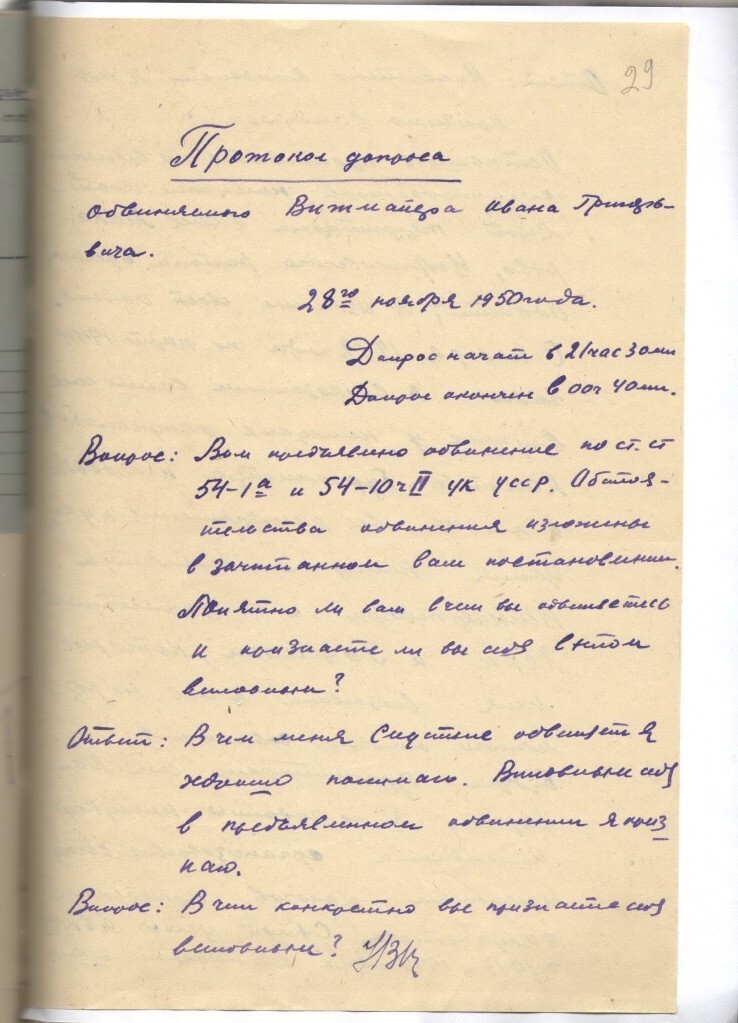 29
Протокол допроса
обвиняемого Вижмайера Ивана
вича.
28го ноября 1950 года.
Допрос начат в 21 час 30 ми
Допрос окончен в 00 ч 40 ми.
Вопрос: Вам предъявлено обвинение по ст. ст
54-1а и 54-10 ч II УК УССР. Обстоя-
тельства обвинения изложены
в зачитанном вам постановлении.
Понятно ли вам в чем вы обвиняетесь
и признаете ли вы себя в этом
виновным?
Ответ: В чем меня следствие обвиняет я
хорошо понимаю. Виновным себя
в предъявленном обвинении я приз
наю.
Вопрос: В чем конкретно вы признаете себя
виновным?